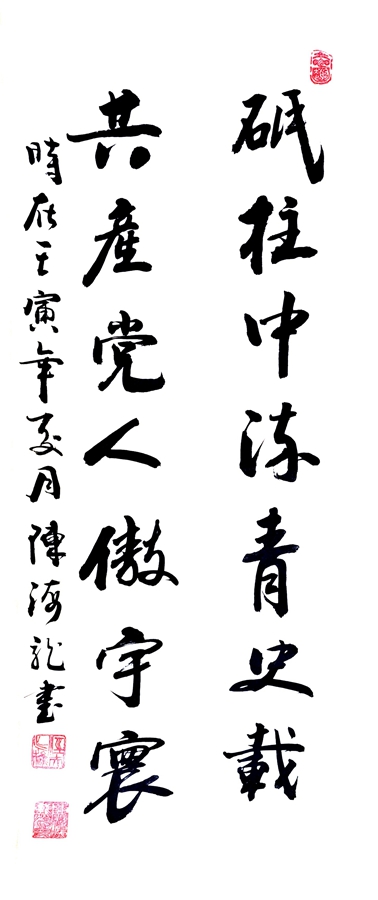 砥柱中流青史載
共產党人傲宇寰
時在壬寅年夏月陳海龍書